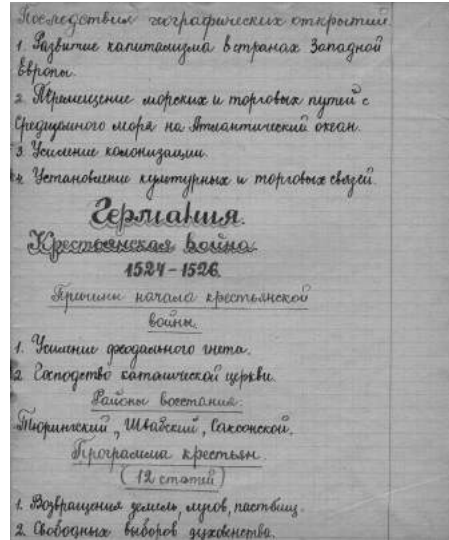 Последствия географических открытий.
1. Развитие капитализма в странах Западной
Европы.
2. Перемещение морских и торговых путей с
Средиземного моря на Атлантический океан.
3. Усиление колонизации.
4. Установление культурных и торговых связей.
Германия.
Крестьянская война
1524-1526.
Причины начала крестьянской
войны.
1. Усиление феодального гнета.
2. Господство католической церкви.
Районы восстания.
Тюрингский, Швабский, Саксонской.
Программа крестьян.
(12 статей)
1. Возвращения земель, лугов, пастбищ.
2. Свободных выборов духовенства.